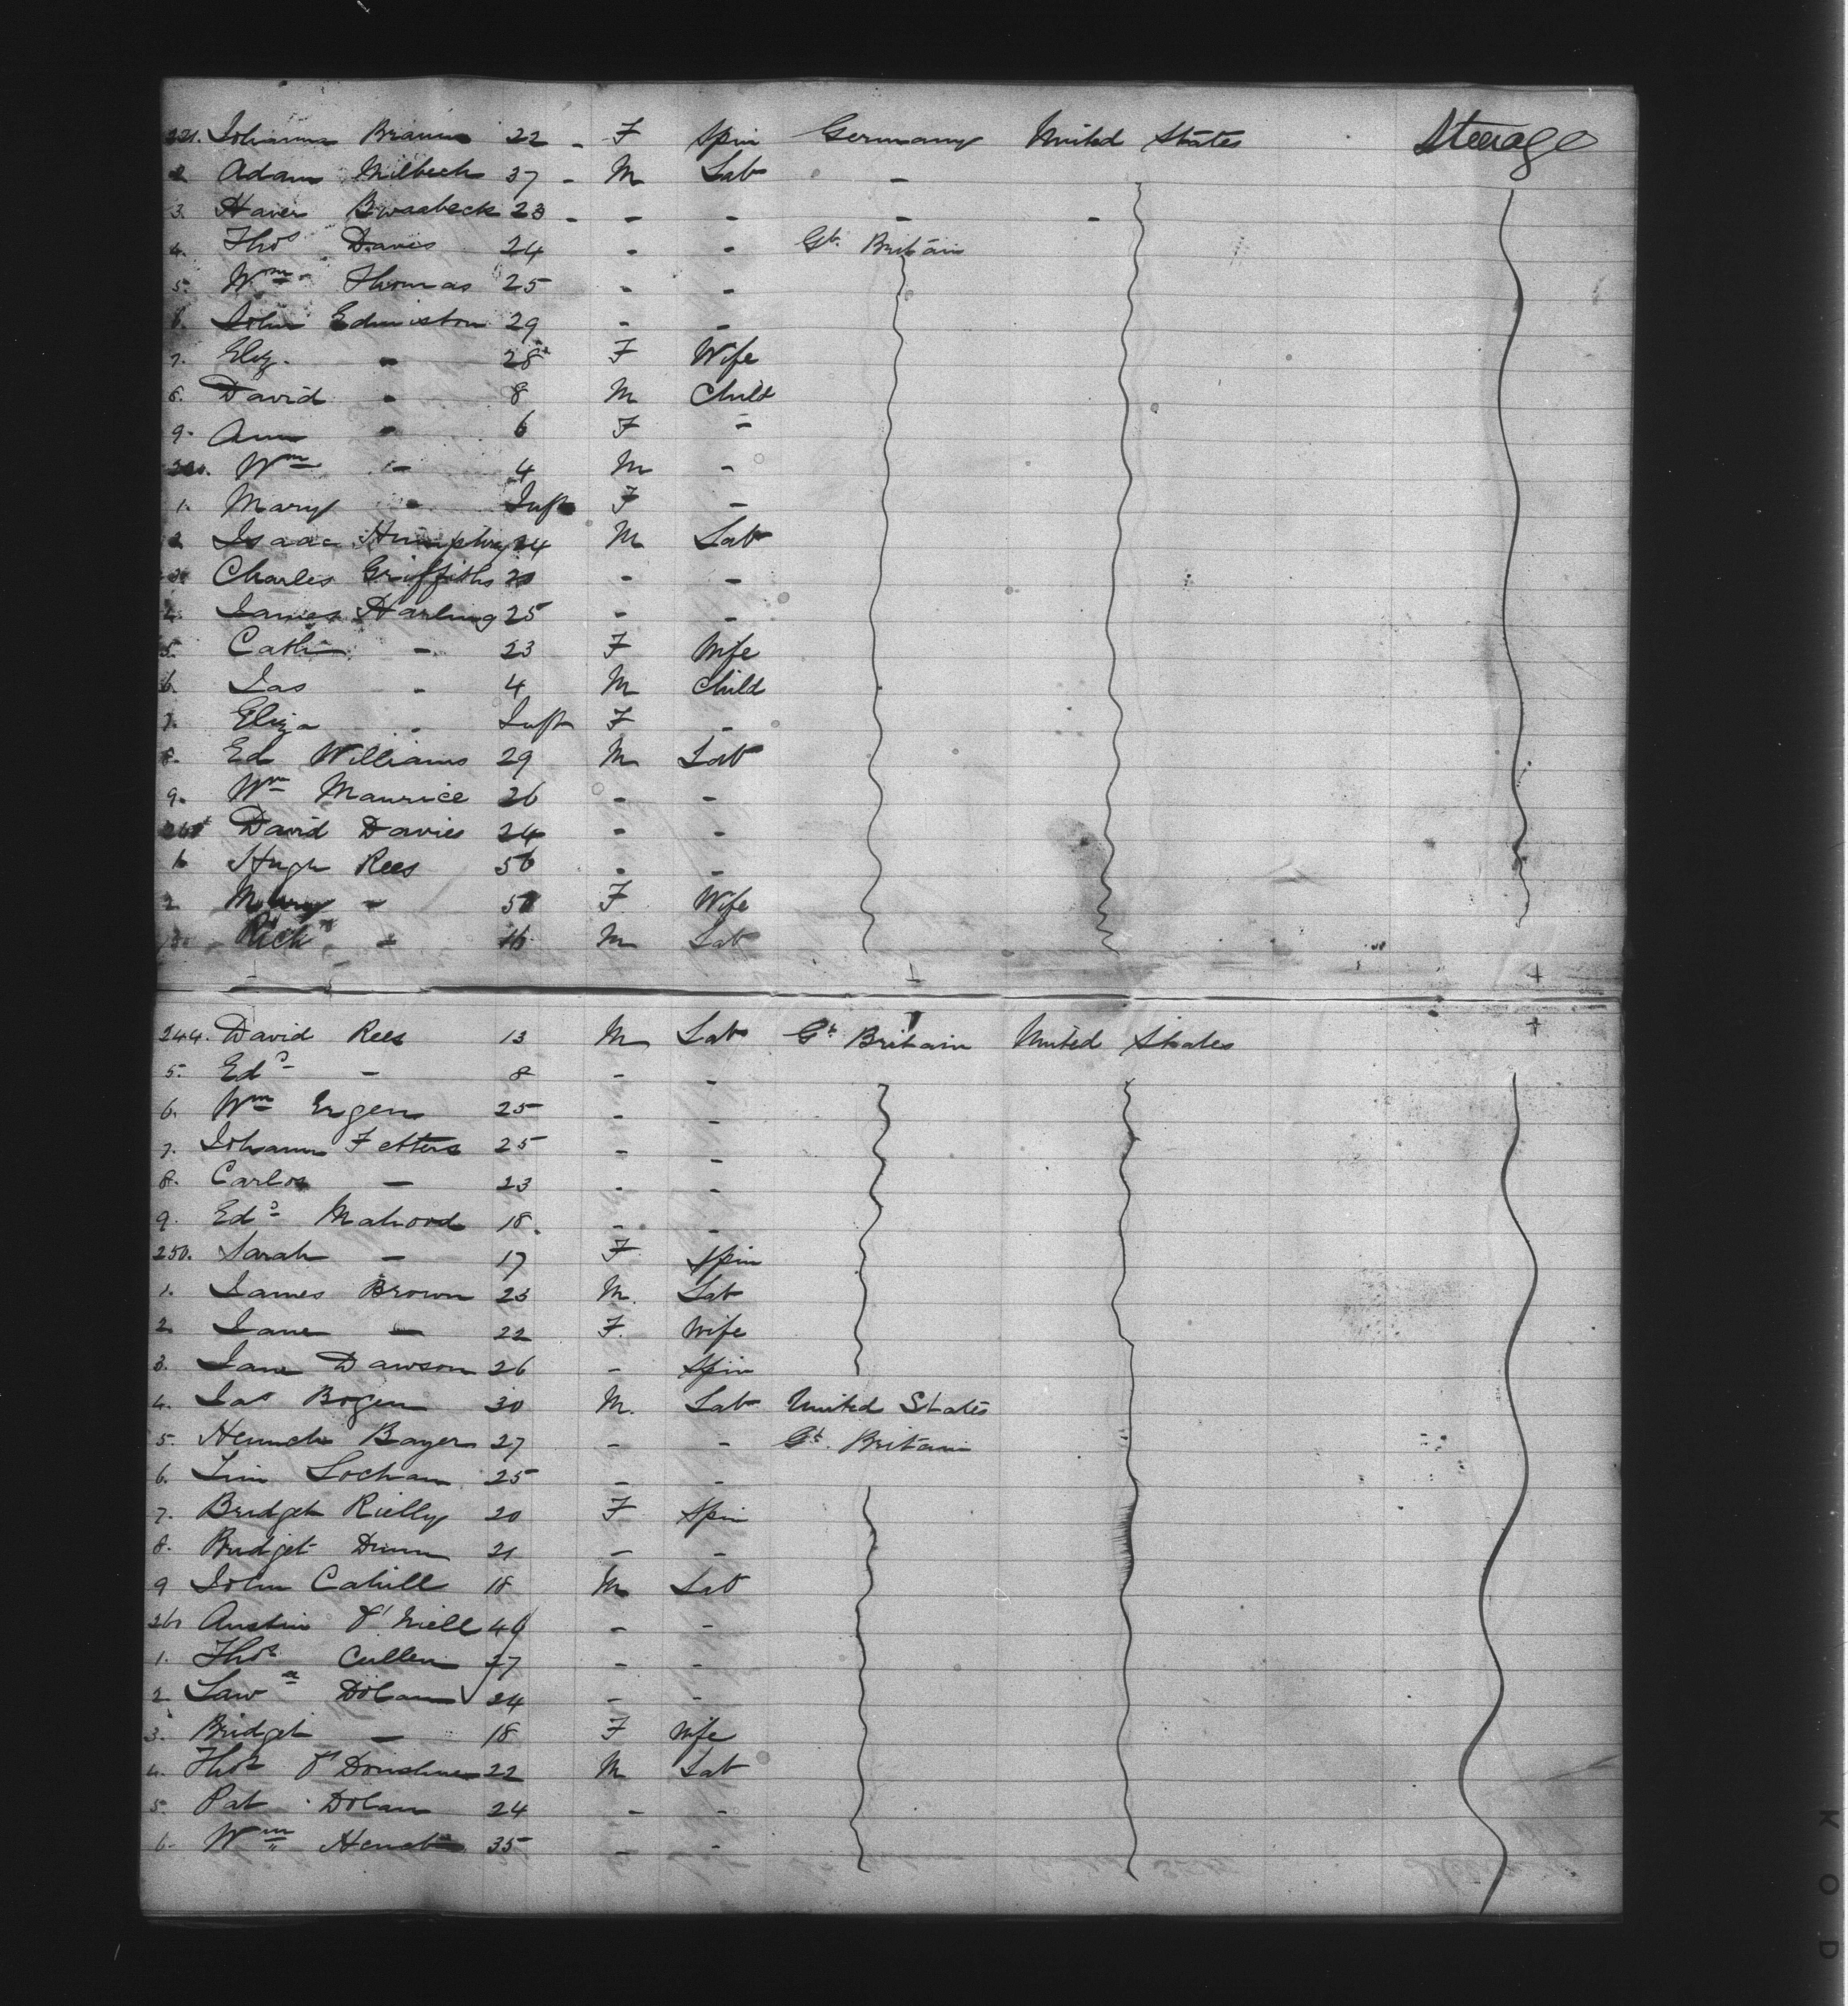 221. Johanna Braun 22 - F Spin Germany United States Steerage
2 Adam Milbech 37 - M Lab -
3. Haver Bwasbeck 23 - - - - -
4. Thos Davis 24 - - Gt. Britain
5. Wm Thomas 25 - -
6. John Edmiston 29 - -
7. Eliz. - 28 F Wife
8. David - 8 M Child
9. Ann - 6 F -
230. Wm - 4 M -
1. Mary - Inft F -
2 Isaac Humphry 24 M Lab
3. Charles Griffiths 20 - -
4. James Harling 25 - -
5. Cath - 23 F Wife
6. Jas - 4 M Child
7. Eliza - Inft F -
8. Ed Williams 29 M Lab
9. Wm Maurice 26 - -
240 David Davies 24 - -
1. Hugh Rees 56 - -
2. Mary - 50 F Wife
3. Rich - 16 M Lab
244. David Rees 13 M Lab Gt Britain United States
5. Edd - 8 - -
6. Wm Ergen 25 - -
7. Johann Fetters 25 - -
8. Carlos - 23 - -
9. Edd Mahood 18. - -
250. Sarah - 17 F Spin
1. James Brown 23 M. Lab
2. Jane - 22 F. Wife
3. Jane Dawson 26 - Spin
4. Jas Bogen 30 M. Lab United States
5. Heinrich Bayer 27 - - Gt. Britain
6. Tim Lochan 25 - -
7. Bridget Rielly 20 F Spin
8. Bridget Dunn 21 - -
9 John Cahill 18 M Lab
260 Austin O'Niell 40 - -
1. Thos Cullen 27 - -
2. Lawe Dolan 24 - -
3. Bridget - 18 F Wife
4. Thos O'Donohue 22 M Lab
5. Pat Dolan 24 - -
6. Wm 35 - -